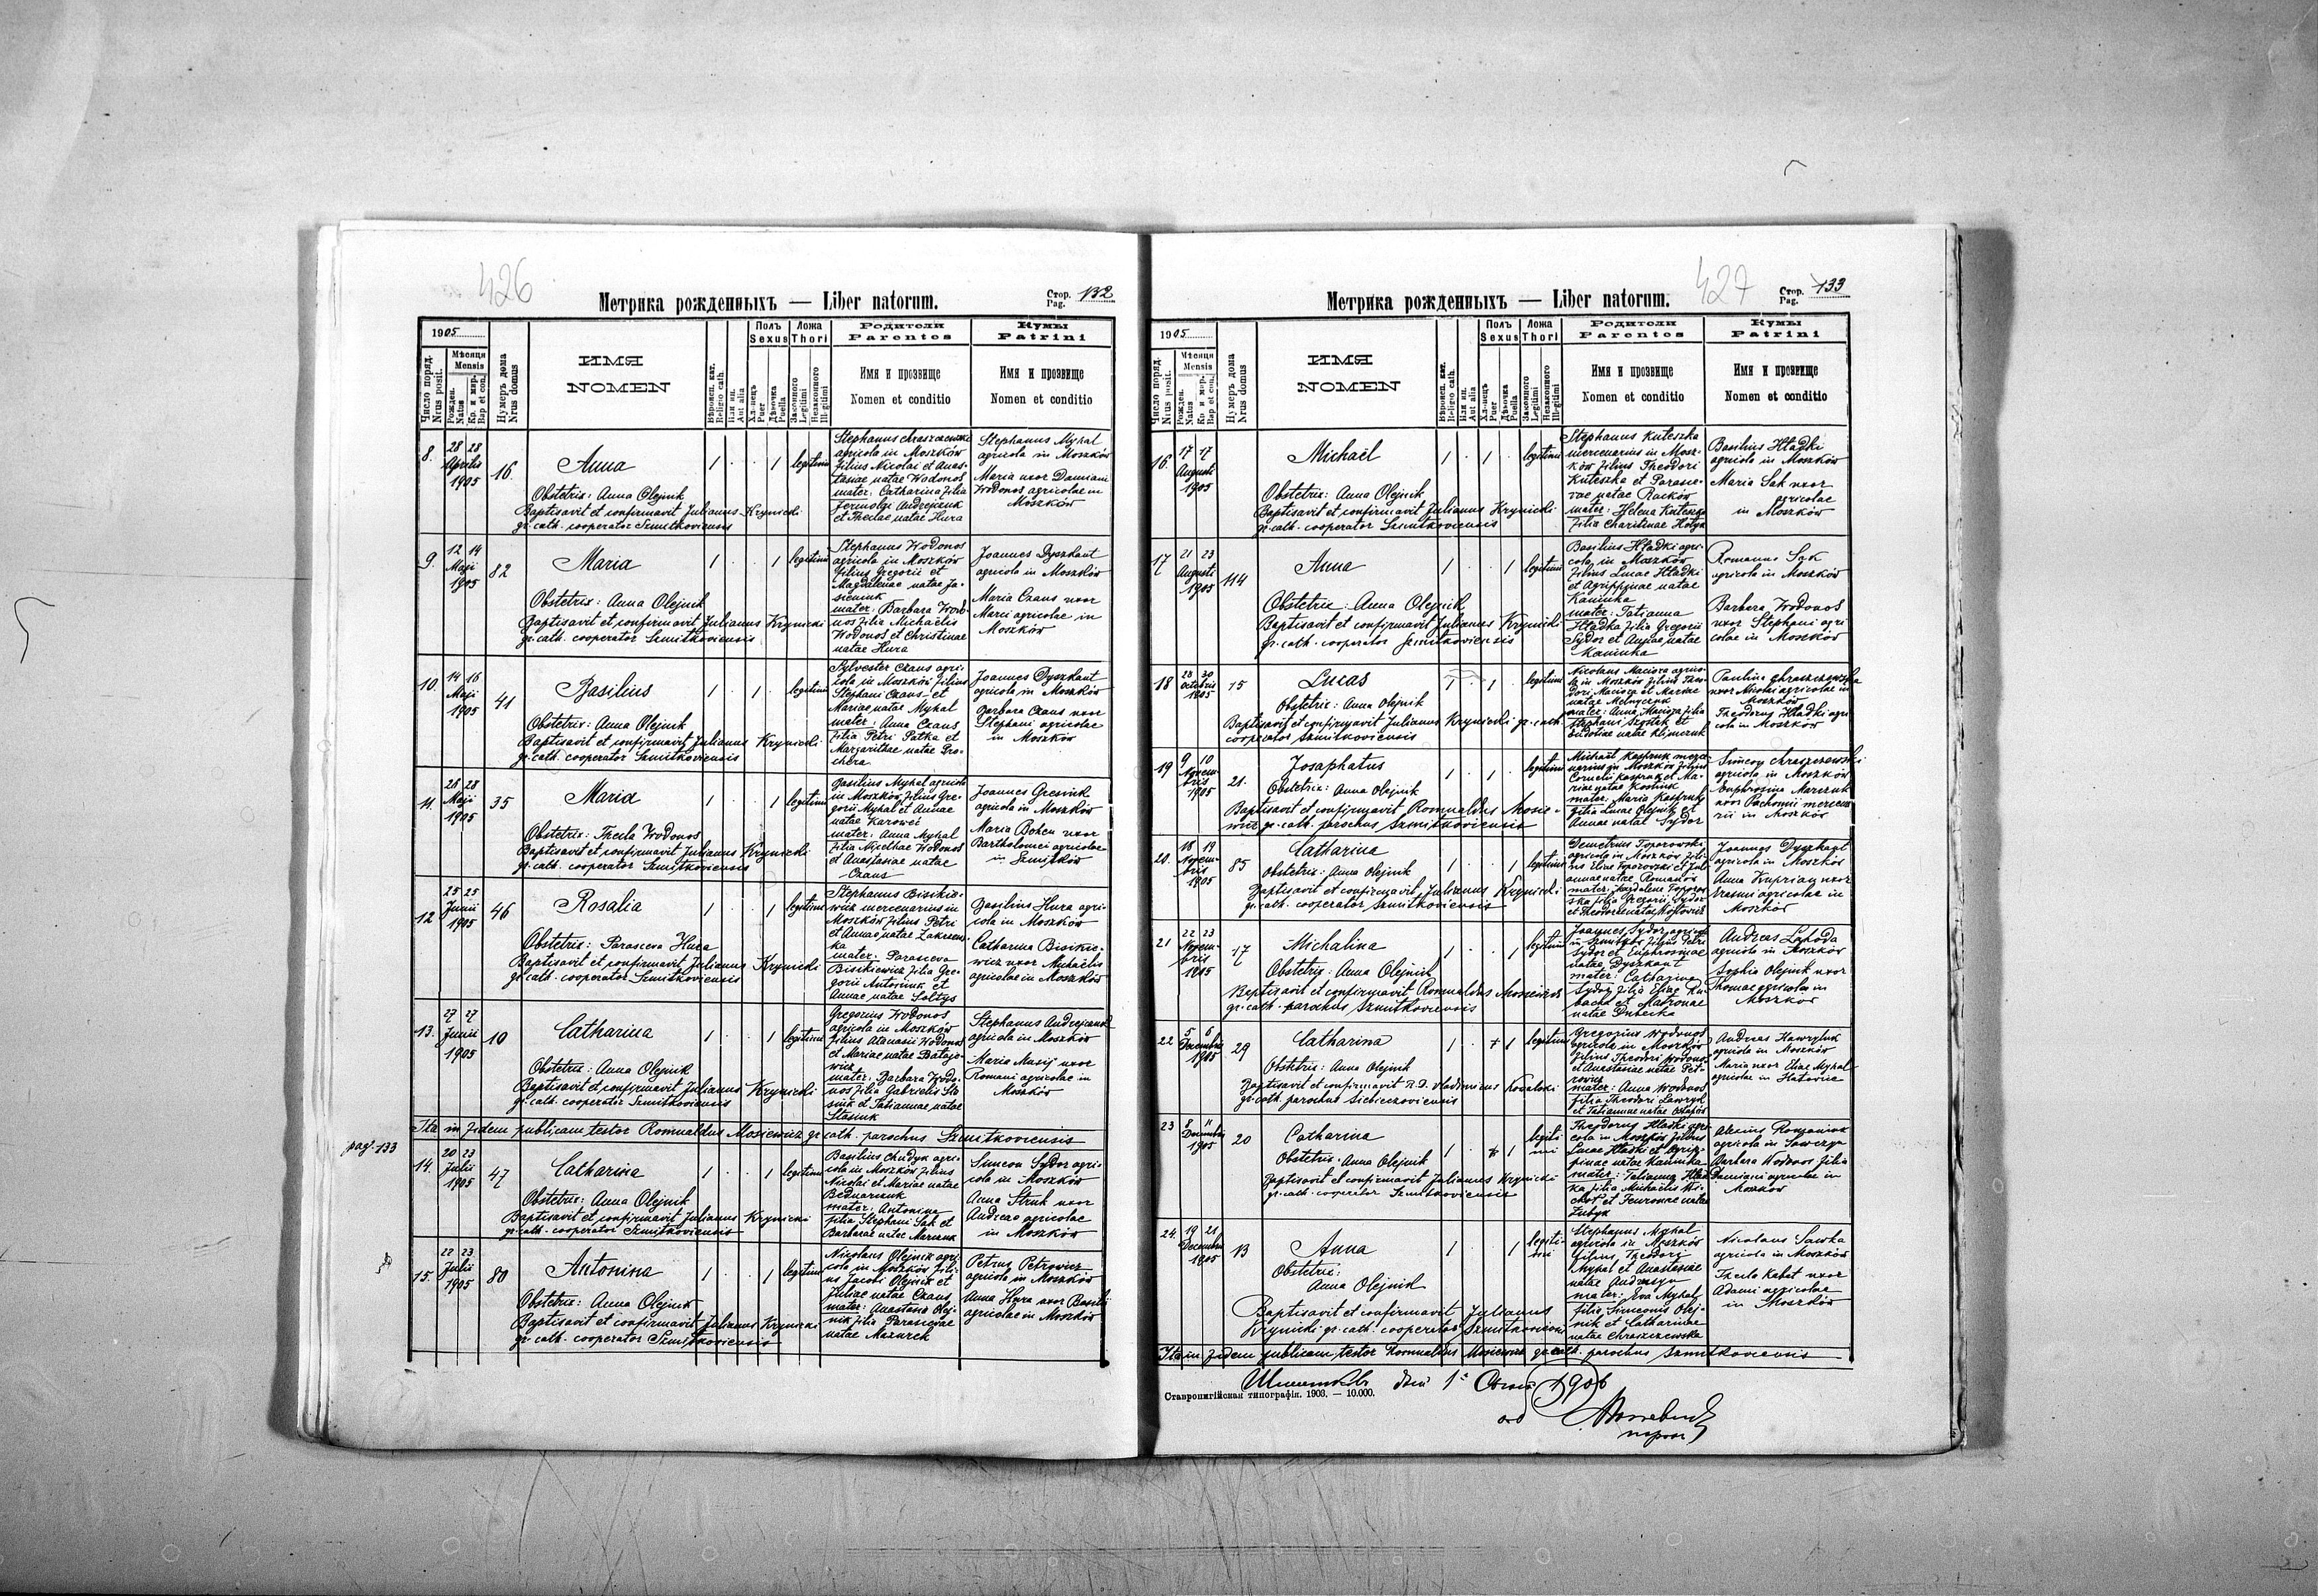 426
Метрика рожденныхъ — Liber natorum.
Стор. Pag. 132
1905
Число поряд. Nrus posit.
Мѣсяця Mensis
Рожден. Natus
Кр. и мир. Bap et con.
Нумеръ дома Nrus domus
ИМЯ
NOMEN
Вѣроисп. кат. Religio cath.
Или ин. Aut alia
Полъ Sexus
Хл-пецъ Puer
Дѣвочка Puella
Ложа Thori
Законного Legitimi
Незаконного Illegitimi
Родители
Parentes
Имя и прозвище
Nomen et conditio
Кумы
Patrini
Имя и прозвище
Nomen et conditio
8. 28 28 Aprilis 1905 16 Anna 1 1 legitimi
Obstetrix: Anna Olejnik
Baptisavit et confirmavit Julianus Krynicki
gr. cath. cooperator Szmitkoviensis
Stephanus Chraszczewski
agricola in Moszków
filius Nicolai et Anas-
tasiae natae Wodonos
mater: Catharina filia
Jermolai Andrejczuk
et Theclae natae Hura
Stephanus Myhal
agricola in Moszków
Maria uxor Damiani
Wodonos agricolae in
Moszków
9. 12 14 Maji 1905 82 Maria 1 1 legitimi
Obstetrix: Anna Olejnik
Baptisavit et confirmavit Julianus Krynicki
gr. cath. cooperator Szmitkoviensis
Stephanus Wodonos
agricola in Moszków
filius Gregorii et
Magdalenae natae Ja-
sieniuk
mater: Barbara Wodo-
nos filia Michaëlis
Wodonos et Christinae
natae Hura
Joannes Dyszkant
agricola in Moszków
Maria Czaus uxor
Marci agricolae in
Moszków
10. 14 16 Maji 1905 41 Basilius 1 1 legitimi
Obstetrix: Anna Olejnik
Baptisavit et confirmavit Julianus Krynicki
gr. cath. cooperator Szmitkoviensis
Sylvester Czaus agri-
cola in Moszków filius
Stephani Czaus et
Mariae natae Myhal
mater: Anna Czaus
filia Petri Patka et
Margarithae natae Pro-
chera
Joannes Dyszkant
agricola in Moszków
Barbara Czaus uxor
Stephani agricolae
in Moszków
11. 26 28 Maji 1905 35 Maria 1 1 legitimi
Obstetrix: Thecla Wodonos
Baptisavit et confirmavit Julianus Krynicki
gr. cath. cooperator Szmitkoviensis
Basilius Myhal agricola
in Moszków filius Gre-
gorii Myhal et Annae
natae Karowec
mater: Anna Myhal
filia Wodonos
et Anastasiae natae
Czaus
Joannes
agricola in Moszków
Maria Bohen uxor
Bartholomei agricolae
in Szmitków
12 25 25 Junii 1905 46 Rosalia 1 1 legitimi
Obstetrix: Parasceva Hura
Baptisavit et confirmavit Julianus Krynicki
gr. cath. cooperator Szmitkoviensis
Stephanus Bisikie-
wicz mercenarius in
Moszków filius Petri
et Annae natae
mater: Parasceva
Bisikiewicz filia Gre-
gorii Antoniuk et
Annae natae Soltys
Basilius Hura agri-
cola in Moszków
Catharina Bisikie-
wicz uxor Michaëlis
agricolae in Moszków
13. 27 27 Junii 1905 10 Catharina 1 1 legitimi
Obstetrix: Anna Olejnik
Baptisavit et confirmavit Julianus Krynicki
gr. cath. cooperator Szmitkoviensis
Gregorius Wodonos
agricola in Moszków
filius Atanasii Wodonos
et Mariae natae Batajo-
wicz
mater: Barbara Wodo-
nos filia Gabrielis Sta-
siuk et Tatiannae natae
Stasiuk
Stephanus Andrejczuk
agricola in Moszków
Maria Masij uxor
Romani agricolae in
Moszków
Ita in fidem publicam testor Romualdus Mosiewicz gr. cath. parochus Szmitkoviensis
pag. 133
14. 20 23 Julii 1905 47 Catharina 1 1 legitimi
Obstetrix: Anna Olejnik
Baptisavit et confirmavit Julianus Krynicki
gr. cath. cooperator Szmitkoviensis
Basilius Chudyk agri-
cola in Moszków filius
Nicolai et Mariae natae
Bednarczuk
mater: Antonina
filia Stephani Sak et
Barbarae natae Marczuk
Simeon Sydor agri-
cola in Moszków
Anna Struk uxor
Andreae agricolae
in Moszków
15. 22 23 Julii 1905 80 Antonina 1 1 legitimi
Obstetrix: Anna Olejnik
Baptisavit et confirmavit Julianus Krynicki
gr. cath. cooperator Szmitkoviensis
Nicolaus Olejnik agri-
cola in Moszków fili-
us Jacobi Olejnik et
Juliae natae Czaus
mater: Anastasia Olej-
nik filia Parascevae
natae Mazurek
Petrus Petrowicz
agricola in Moszków
Anna Hura uxor Basilii
agricolae in Moszków
427
Метрика рожденныхъ — Liber natorum.
Стор. Pag. 133
1905
Число поряд. Nrus posit.
Мѣсяця Mensis
Рожден. Natus
Кр. и мир. Bap et con.
Нумеръ дома Nrus domus
ИМЯ
NOMEN
Вѣроисп. кат. Religio cath.
Или ин. Aut alia
Полъ Sexus
Хл-пецъ Puer
Дѣвочка Puella
Ложа Thori
Законного Legitimi
Незаконного Illegitimi
Родители
Parentes
Имя и прозвище
Nomen et conditio
Кумы
Patrini
Имя и прозвище
Nomen et conditio
16. 17 17 Augusti 1905 Michaël 1 1 legitimi
Obstetrix: Anna Olejnik
Baptisavit et confirmavit Julianus Krynicki
gr. cath. cooperator Szmitkoviensis
Stephanus Kuteszka
mercenarius in Mosz-
ków filius Theodori
Kuteszka et Parasce-
vae natae Raćków
mater: Helena Kuteszka
filia Charitinae Hołyk
Basilius Hładki
agricola in Moszków
Maria Sak uxor
agricolae
in Moszków
17 21 23 Augusti 1905 114 Anna 1 1 legitimi
Obstetrix: Anna Olejnik
Baptisavit et confirmavit Julianus Krynicki
gr. cath. cooperator Szmitkoviensis
Basilius Hładki agri-
cola in Moszków
filius Lucae Hładki
et Agrippinae natae
Kaminka
mater: Tatianna
Hładka filia Gregorii
Sydor et Annae natae
Kaminka
Romanus Sak
agricola in Moszków
Barbara Wodonos
uxor Stephani agri
colae in Moszków
18 28 30 octobris 1905 15 Lucas 1 1 legitimi
Obstetrix: Anna Olejnik
Baptisavit et confirmavit Julianus Krynicki gr. cath.
cooperator Szmitkoviensis
Nicolaus Maciora agrico-
la in Moszków filius Theo-
dori Maciora et Mariae
natae Melnyczuk
mater: Anna Maciora filia
Stephani Szostek et
Eudotiae natae Klimczuk
Paulina Chraszczewska
uxor Nicolai agricolae in
Moszków
Theodorus Hładki agri
cola in Moszków
19 9 10 Novem-bris 1905 21. Josaphatus 1 1 legitimi
Obstetrix: Anna Olejnik
Baptisavit et confirmavit Romualdus Mosie-
wicz gr. cath. parochus Szmitkoviensis
Michaël Kasprzuk merce-
narius in Moszków filius
Cornelii Kasprzuk et Ma-
riae natae Kostiuk
mater: Maria Kasprzuk
filia Lucae Olejnik et
Annae natae Sydor
Simeon Chraszczewski
agricola in Moszków
Euphrosina Marczuk
uxor Pachomii mercena
rii in Moszków
20. 18 19 Novem-bris 1905 85 Catharina 1 1 legitimi
Obstetrix: Anna Olejnik
Baptisavit et confirmavit Julianus Krynicki
gr. cath. cooperator Szmitkoviensis
Demetrius Toporowski
agricola in Moszków fili-
us Eliae Toporowski et Juli-
annae natae Romanów
mater: Magdalena Toporow-
ska filia Gregorii Sydor
et Theodorae natae Wojtowicz
Joannes Dyszkant
agricola in Moszków
Anna Kuprian uxor
Erasmi agricolae in
Moszków
21 22 23 Novem-bris 1905 17 Michalina 1 1 legitimi
Obstetrix: Anna Olejnik
Baptisavit et confirmavit Romualdus Mosiewicz
gr. cath. parochus Szmitkoviensis
Joannes Sydor agricola
in Szmitków filius Petri
Sydor et Euphrosinae
natae Dyszkant
mater: Catharina
Sydor filia Eliae Ru-
bacha et Matronae
natae Dubecka
Andreas Lahoda
agricola in Moszków
Sophia Olejnik uxor
Thomae agricolae in
Moszków
22 5 6 Decembris 1905 29 Catharina 1 + 1 legitimi
Obstetrix: Anna Olejnik
Baptisavit et confirmavit R. D. Vladimirus Kovalski
gr. cath. parochus Siebieczoviensis
Gregorius Wodonos
agricola in Moszków
filius Theodori Wodonos
et Anastasiae natae Pet-
rowicz
mater: Anna Wodonos
filia Theodori Ławryk
et Tatiannae natae Ostapów
Andreas Hawryluk
agricola in Moszków
Maria uxor Eliae Myhal
agricolae in Hatowice
23 8 11 Decembris 1905 20 Catharina 1 1 legiti mi
Obstetrix: Anna Olejnik
Baptisavit et confirmavit Julianus Krynicki
gr. cath. cooperator Szmitkoviensis
Theodorus Hładki agri-
cola in Moszków filius
Lucae Hładki et Agrip-
pinae natae Kaminka
mater: Tatianna Hład-
ka filia Michaëlis
et Feuroniae natae
Zubyk
Alexius Romaniuk
agricola in Sawczyn
Barbara Wodonos filia
Damiani agricolae in
Moszków
24. 19 21 Decembris 1905 13 Anna 1 1 legiti-mi
Obstetrix:
Anna Olejnik
Baptisavit et confirmavit Julianus
Krynicki gr. cath. cooperator Szmitkoviensis
Stephanus Myhal
agricola in Moszków
filius Theodori
Myhal et Anastasiae
natae
mater: Eva Myhal
filia Simeonis Olej-
nik et Catharinae
natae Chraszczewska
Nicolaus Sawka
agricola in Moszków
Thecla Kabat uxor
Adami agricolae
in Moszków
Ita in fidem publicam testor Romualdus Mosiewicz gr. cath. parochus Szmitkoviensis
дня 1 1906
Ставропигійская типографія. 1903. — 10.000.